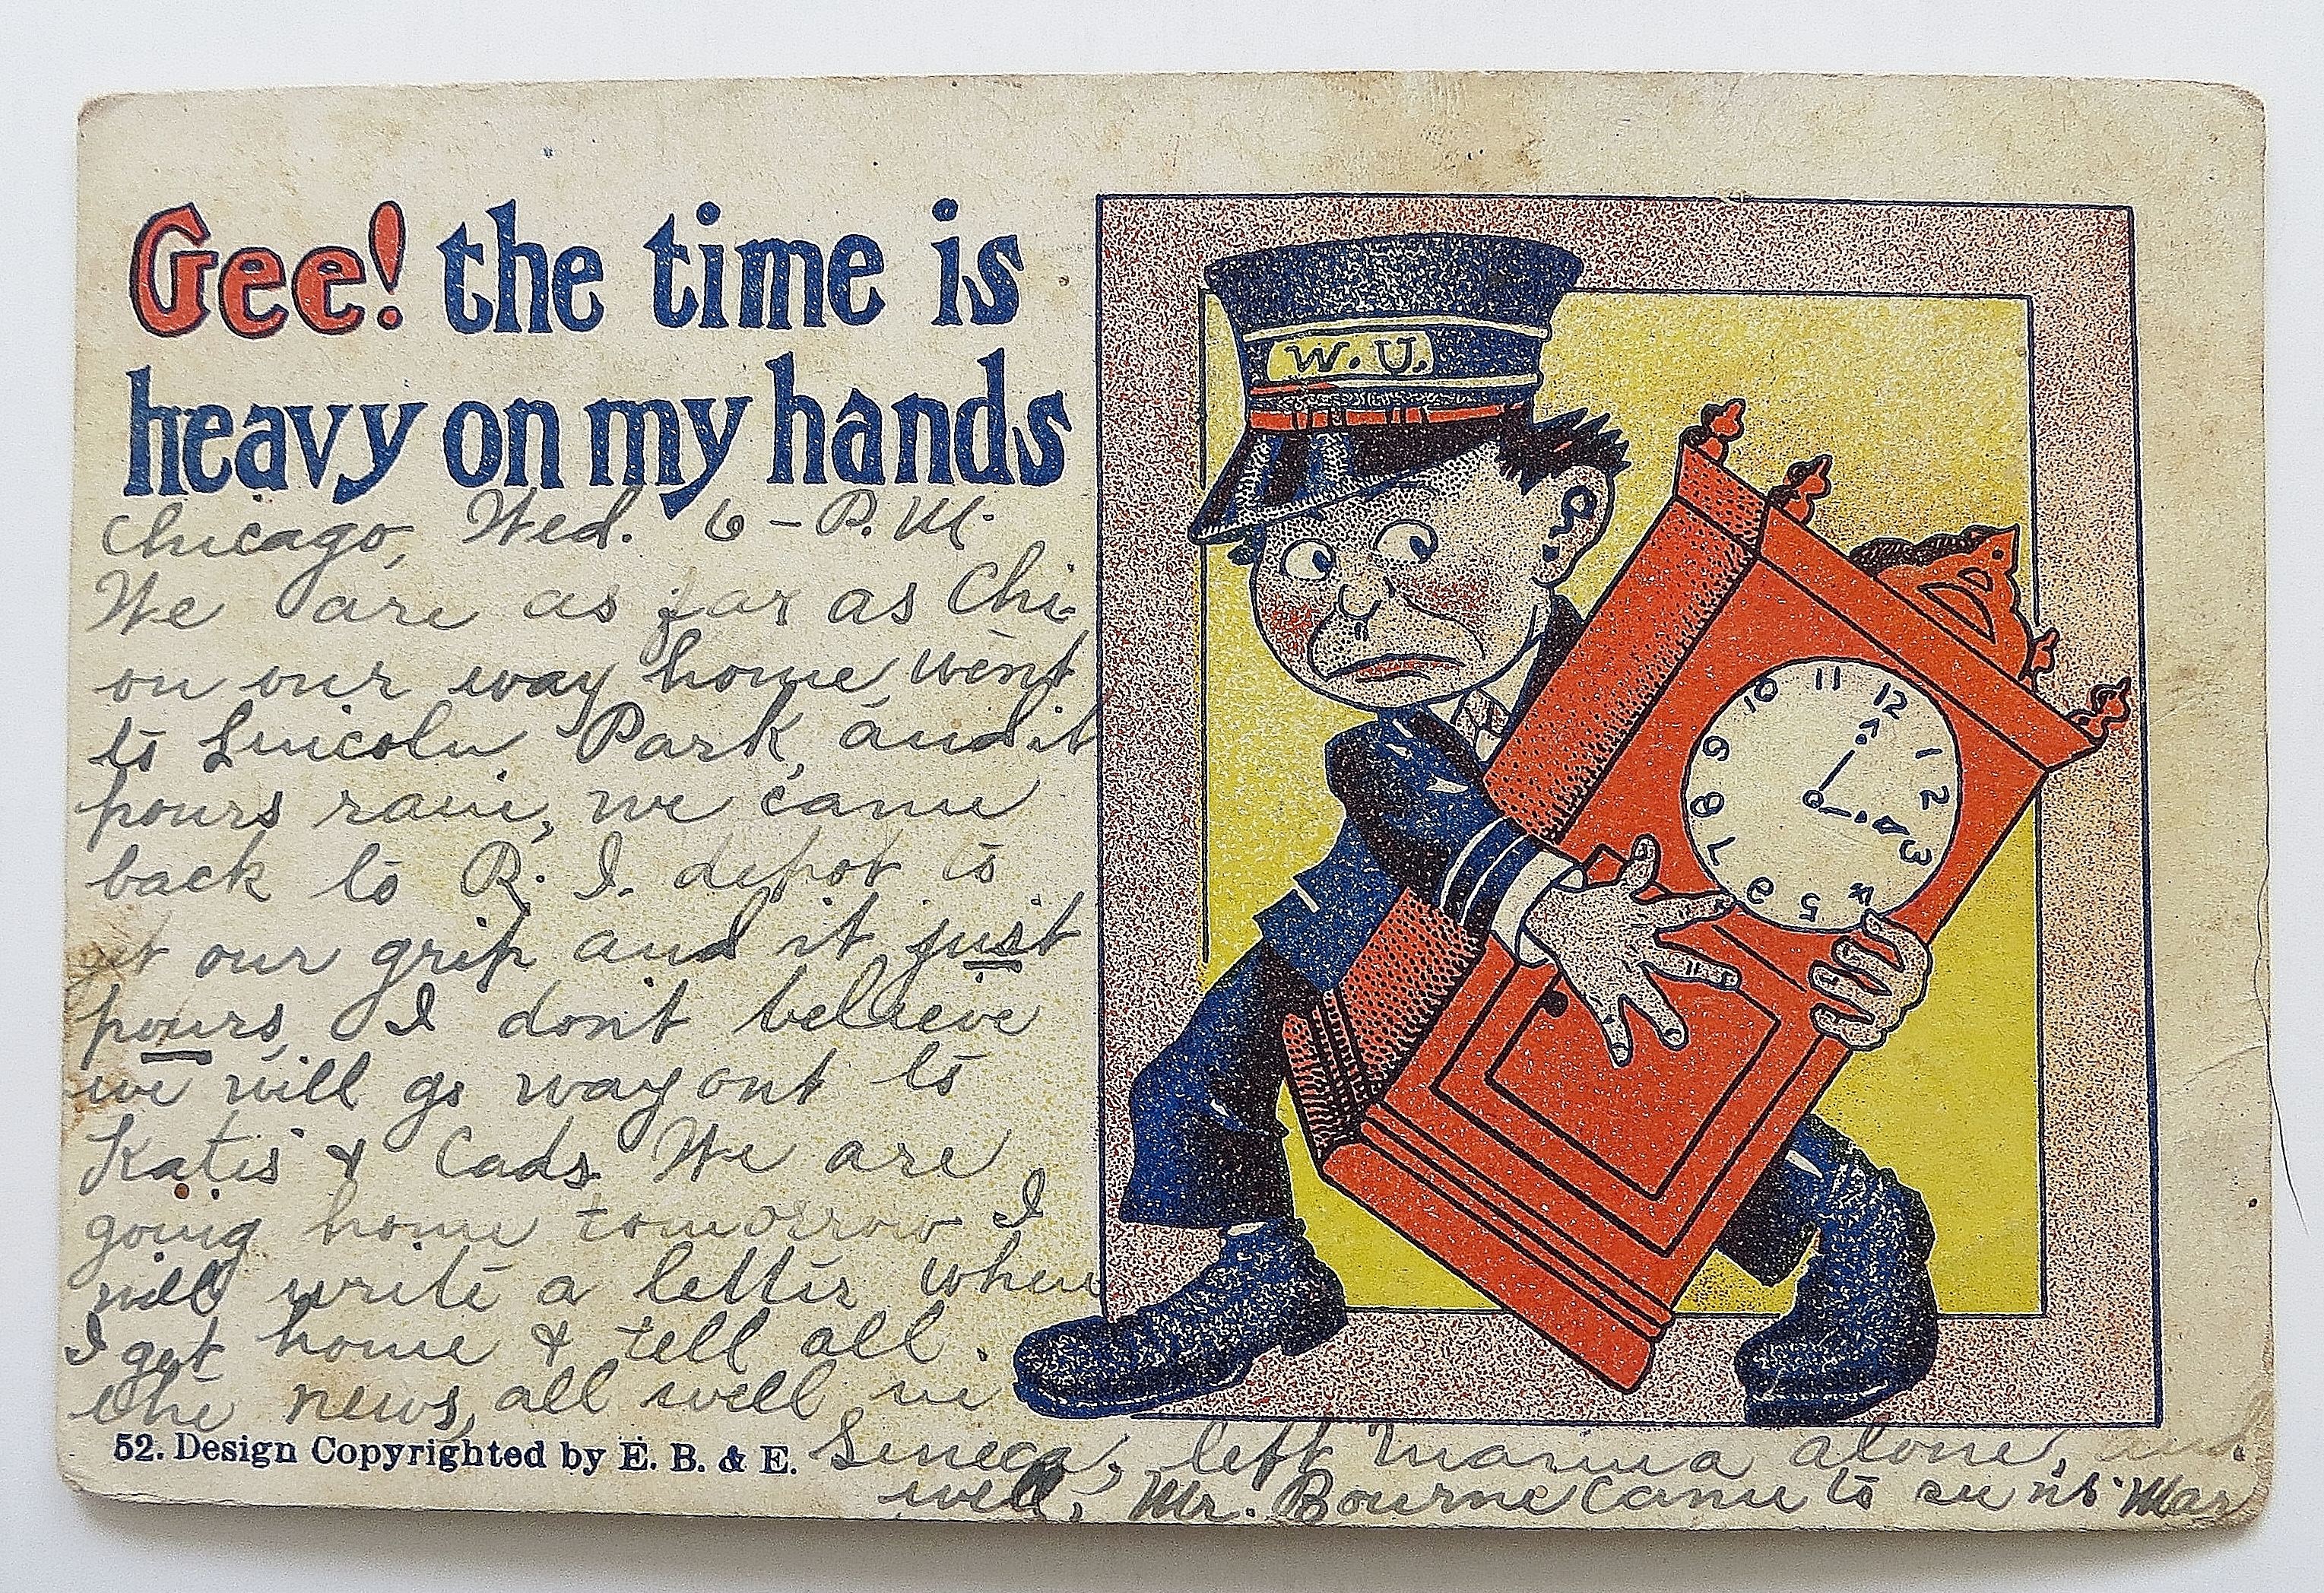 Gee! the time is
heavy on my hands
Chicago, Wed. 6 - P.M.
We are as far as Chi-
on our way home, went
to Lincoln Park, and it
pours rain, we came
back to R. I. depot to
get our grip and it just
pours, I don't believe
we will go way out to
Katis & Cads We are
going home tomorrow I
will write a letter when
I get home & tell all
the news, all well in
52. Design Copyrighted by E. B. & E. Seneca, left Mamma alone, and
well, Mr. Bourne came to see us Mar
W. U.
10 11 12
9 1
8 2
7 3
6 5 4